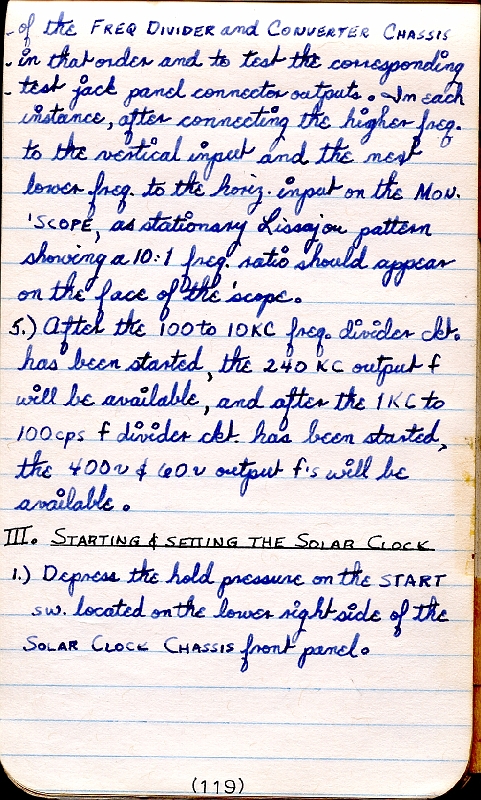 of the FREQ DIVIDER and CONVERTER CHASSIS
in that order and to test the corresponding
test jack panel connector outputs. In each
instance, after connecting the higher freq.
to the vertical input and the next
lower freq. to the horiz. input on the MON.
'SCOPE, as stationary Lissajou pattern
showing a 10:1 freq. ratio should appear
on the face of the 'scope.
5.) After the 100 to 10KC freq. divider ckt.
has been started, the 240 KC output f
will be available, and after the 1KC to
100cps f divider ckt. has been started,
the 400~ & 60~ output f's will be
available.
III. STARTING & SETTING THE SOLAR CLOCK
1.) Depress the hold pressure on the START
sw. located on the lower right side of the
SOLAR CLOCK CHASSIS front panel.
(119)